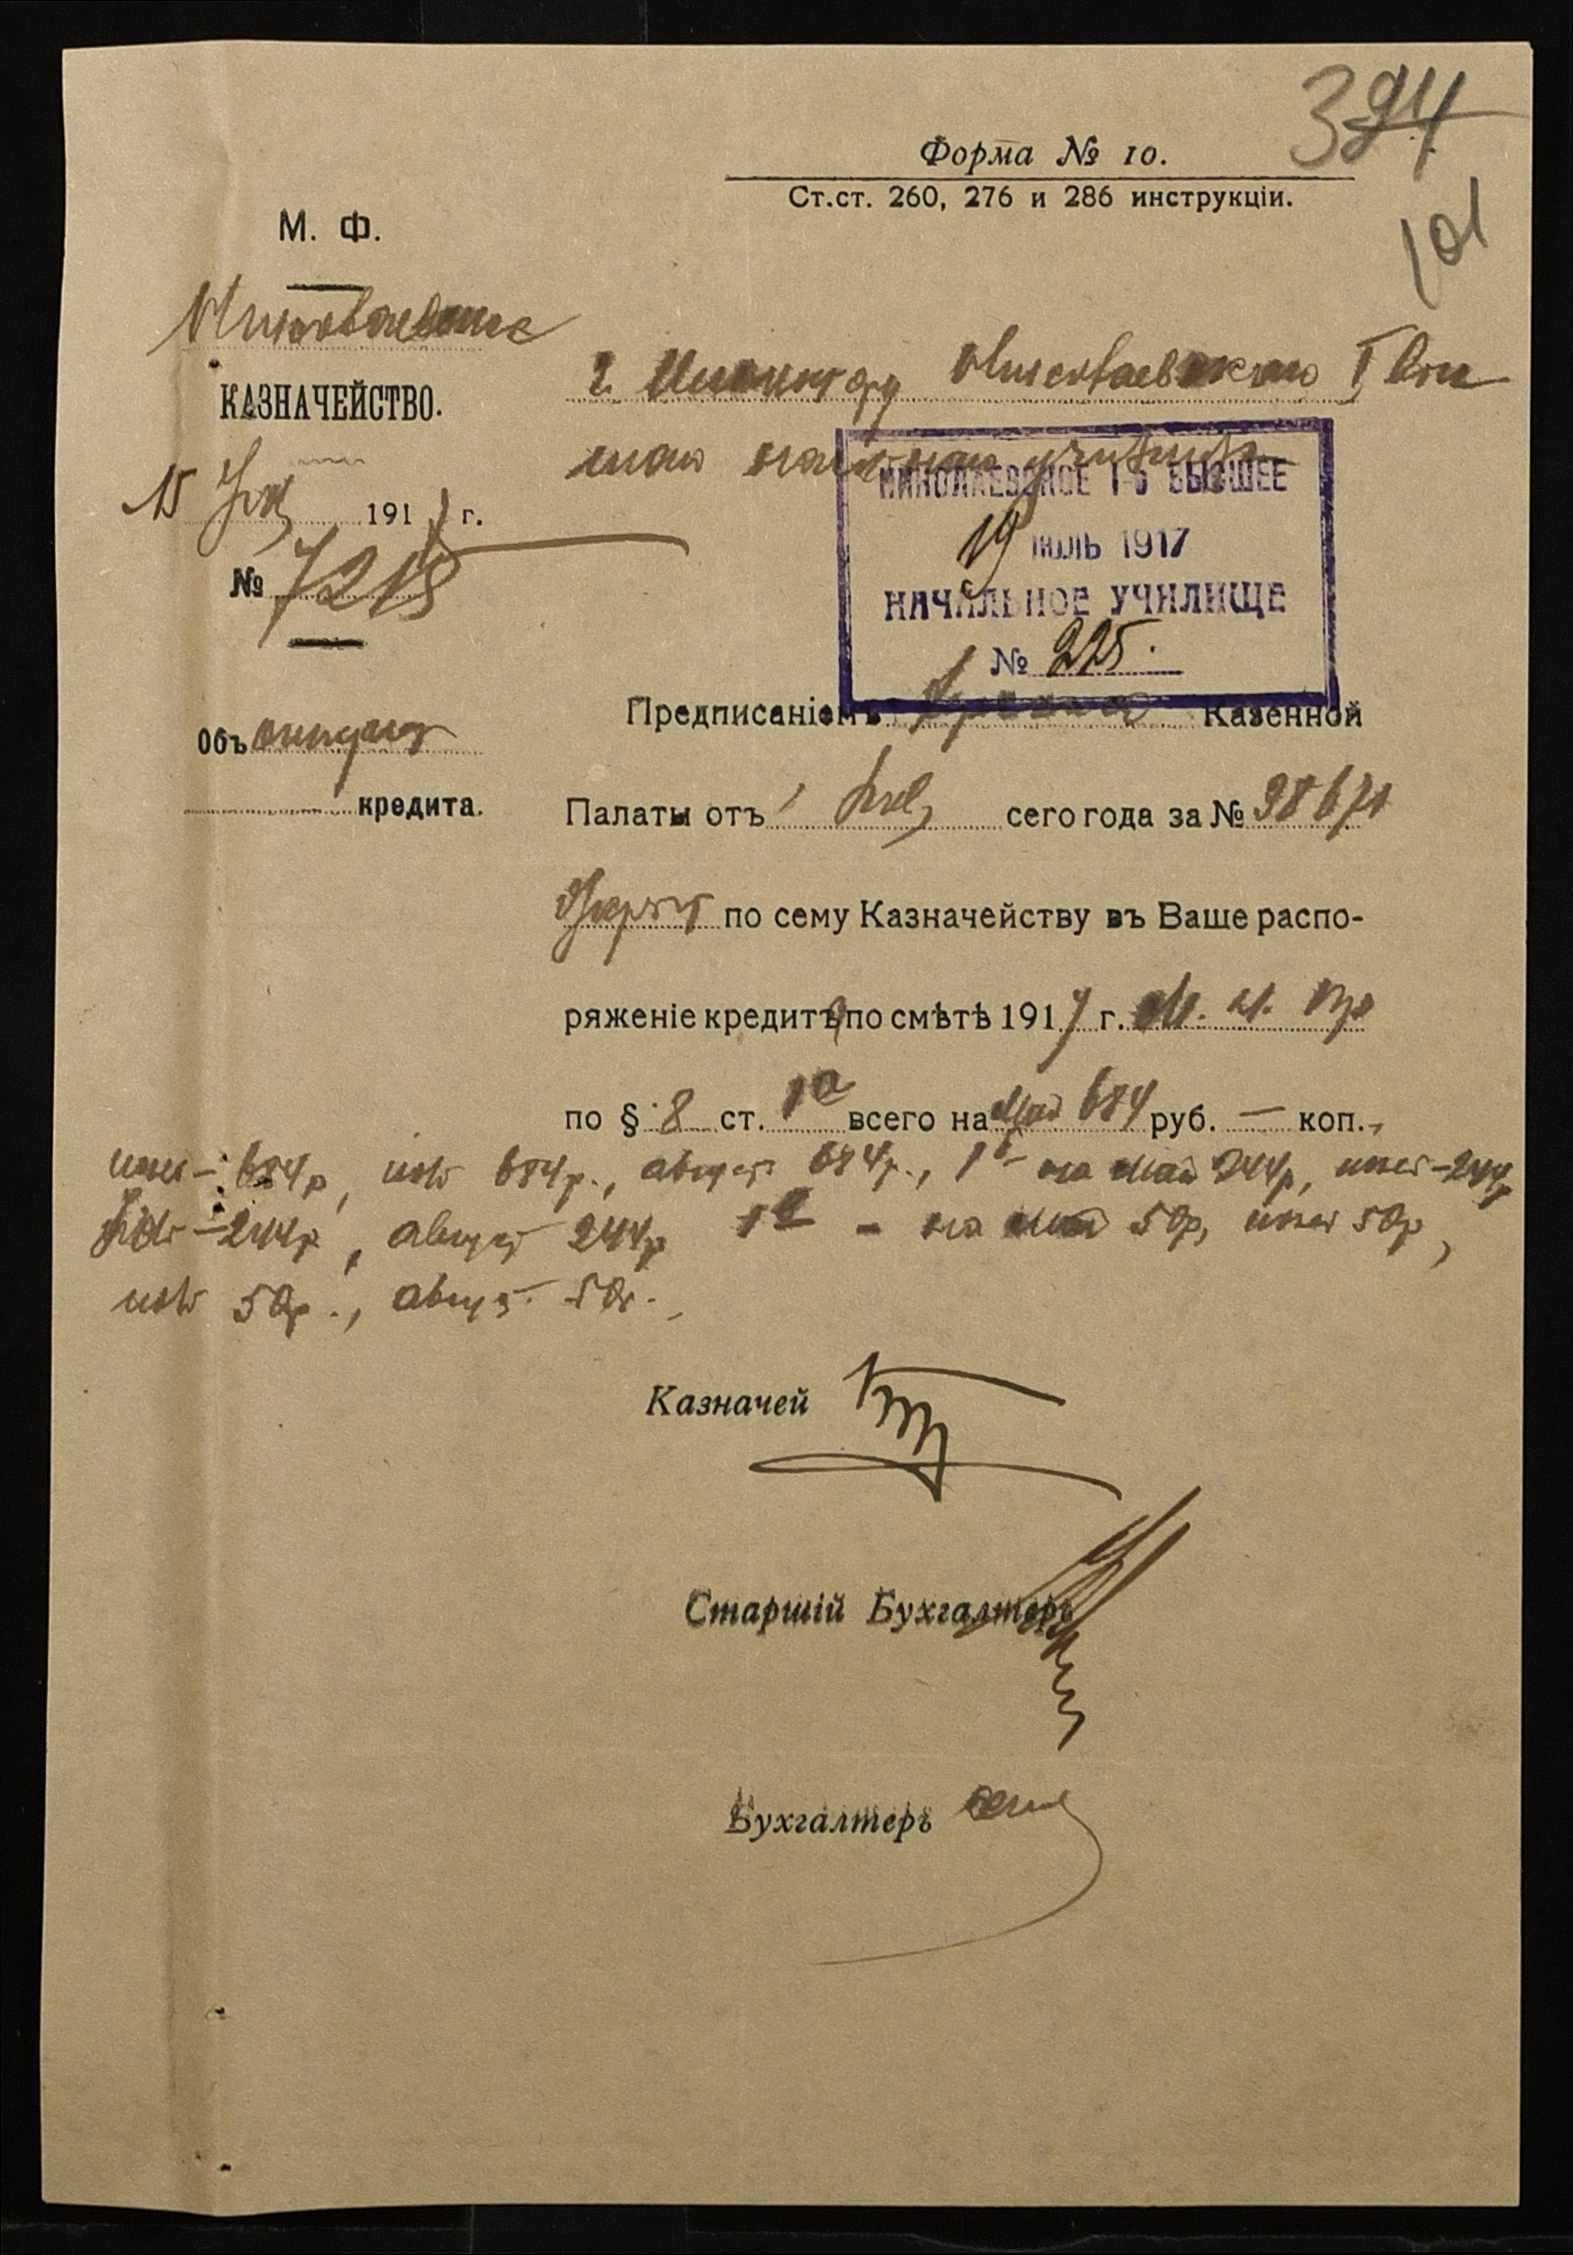 394
101
Форма № 10.
Ст.ст. 260, 276 и 286 инструкціи.
М. Ф.
Николаевское
КАЗНАЧЕЙСТВО.
15 1917 г.
№ 7218
г. Инспектору Николаевскаго I Выс
шаго начальнаго училища
НИКОЛАЕВСКОЕ 1-Е ВЫСШЕЕ
19 ІЮЛЬ 1917
НАЧАЛЬНОЕ УЧИЛИЩЕ
№ 225.
Объ открытіи
кредита.
Предписаніемъ Казенной
Палаты отъ сего года за № 38671
Открытъ по сему Казначейству въ Ваше распо-
ряженіе кредитъ по смѣтѣ 1917 г. М. Н. Пр
по § 8 ст. 1а всего на Май 684 руб. — коп.,
іюнь – 684р, іюль 684р., августъ 684р., 1б – на май 244р, іюнь – 244р
іюль – 244р, августъ 244р 1в – на май 50р, іюнь 50р,
іюль 50р., август. 50р.
Казначей
Старшій Бухгалтеръ
Бухгалтеръ